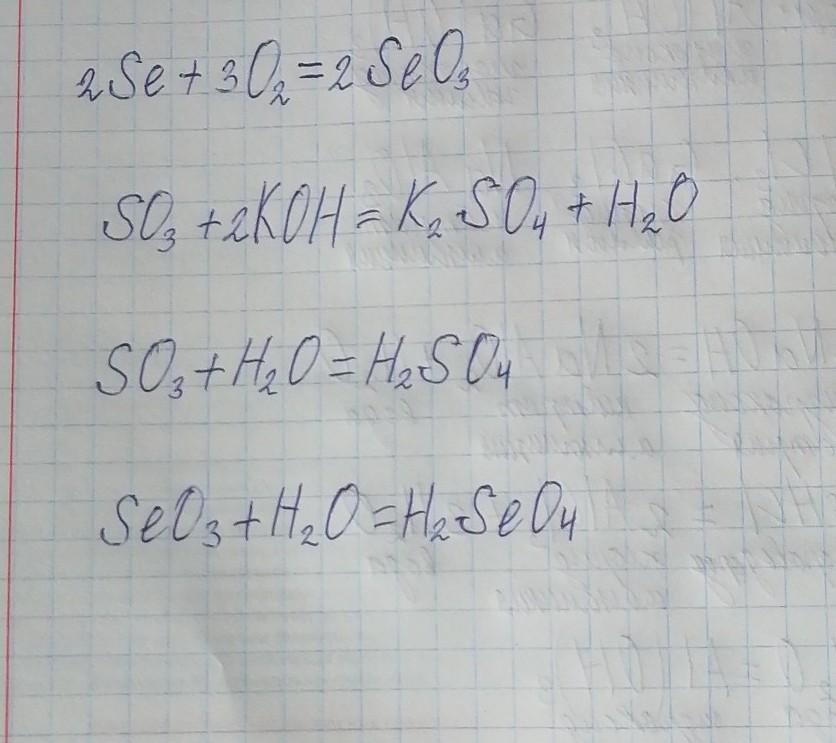 2Se + 3O₂ = 2SeO₃
SO₃ + 2KOH = K₂SO₄ + H₂O
SO₃ + H₂O = H₂SO₄
SeO₃ + H₂O = H₂SeO₄